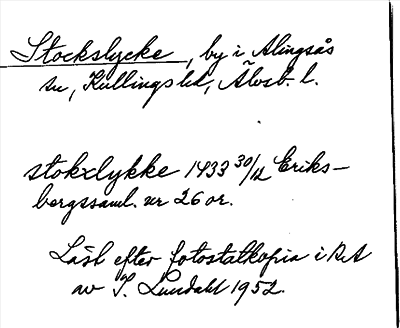 Stockslycke, by i Alingsås
sn, Kullings hd, Älvsb. l.
stokxlykke 1433 30/12 Eriks-
bergssaml. nr 26 or.
Läst efter fotostatkopia i RA
av I. Lundahl 1952.